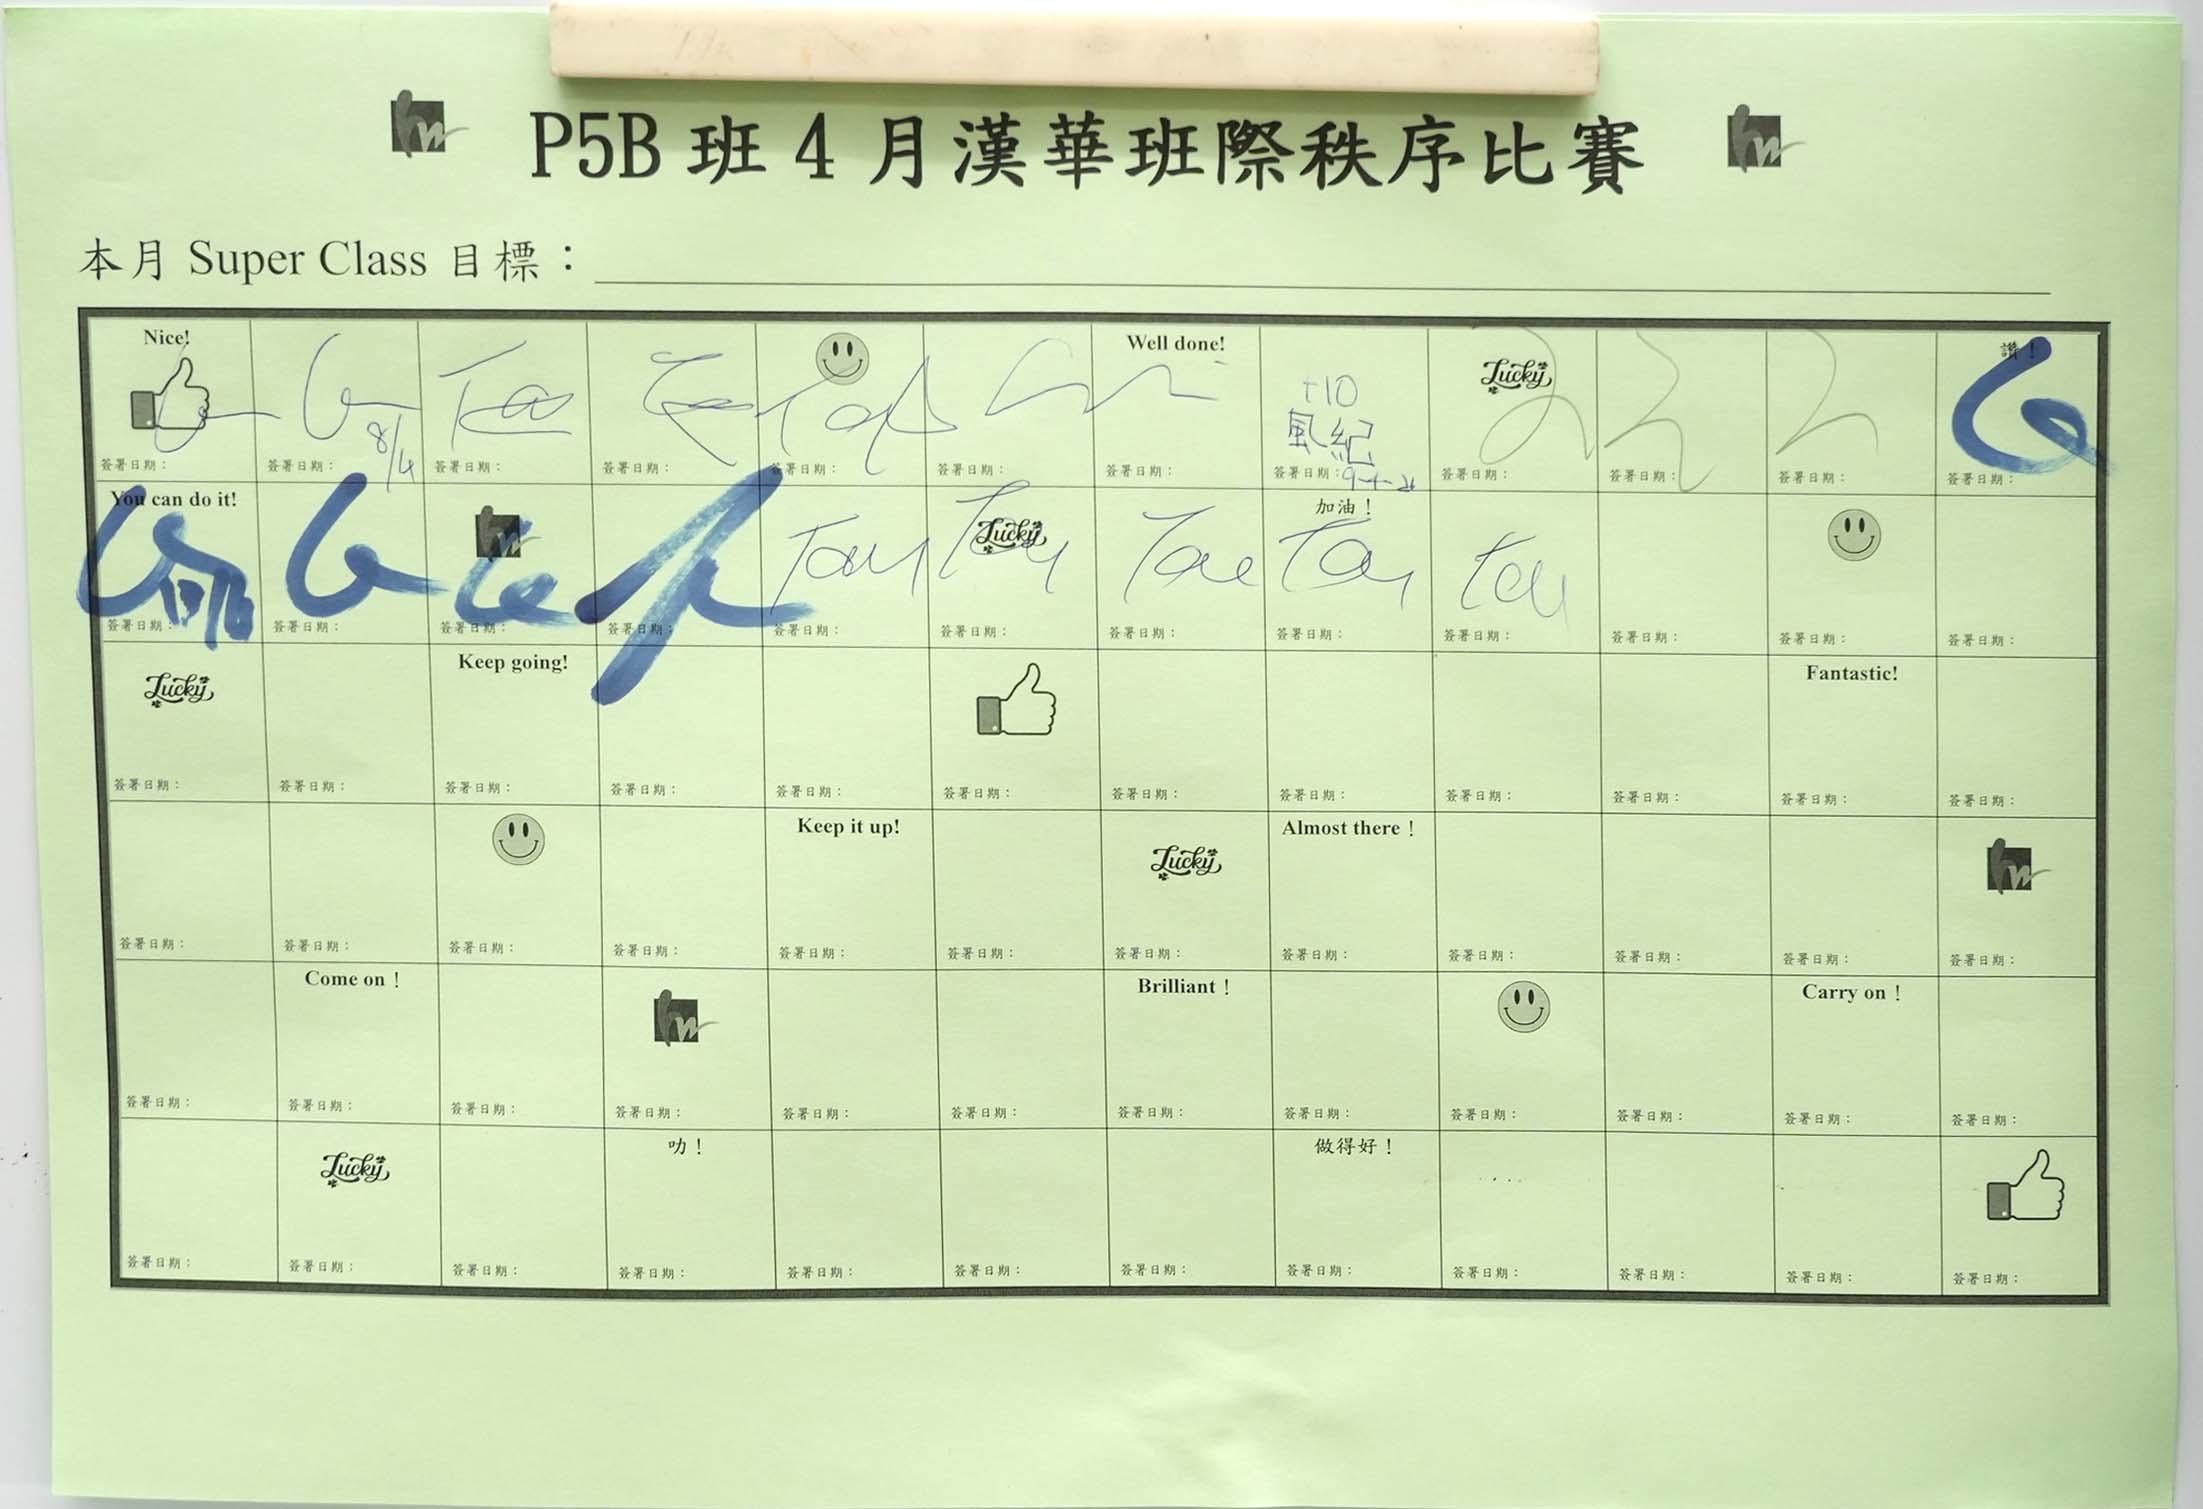 P5B 班 4 月漢華班際秩序比賽
本月 Super Class 目標：
Nice! Well done! 讚！
8/4
+10
風紀
Lucky
簽署日期： 簽署日期： 簽署日期： 簽署日期： 簽署日期： 簽署日期： 簽署日期： 簽署日期： 簽署日期： 簽署日期： 簽署日期： 簽署日期：
You can do it! 加油！
Lucky
Tay Tay Tay Tay
簽署日期： 簽署日期： 簽署日期： 簽署日期： 簽署日期： 簽署日期： 簽署日期： 簽署日期： 簽署日期： 簽署日期： 簽署日期： 簽署日期：
Keep going! Fantastic!
Lucky
簽署日期： 簽署日期： 簽署日期： 簽署日期： 簽署日期： 簽署日期： 簽署日期： 簽署日期： 簽署日期： 簽署日期： 簽署日期： 簽署日期：
Keep it up! Almost there！
Lucky
簽署日期： 簽署日期： 簽署日期： 簽署日期： 簽署日期： 簽署日期： 簽署日期： 簽署日期： 簽署日期： 簽署日期： 簽署日期： 簽署日期：
Come on！ Brilliant！ Carry on！
簽署日期： 簽署日期： 簽署日期： 簽署日期： 簽署日期： 簽署日期： 簽署日期： 簽署日期： 簽署日期： 簽署日期： 簽署日期： 簽署日期：
叻！ 做得好！
Lucky
簽署日期： 簽署日期： 簽署日期： 簽署日期： 簽署日期： 簽署日期： 簽署日期： 簽署日期： 簽署日期： 簽署日期： 簽署日期： 簽署日期：